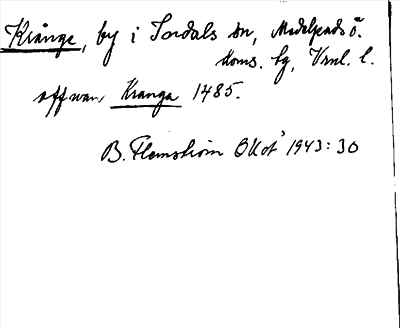 Krånge, by i Tordals sn, Medelpads ö.
Doms. hg, Vrnl. l.
aff wan Kranga 1485.
B. Flemström OUoÅ 1943: 30